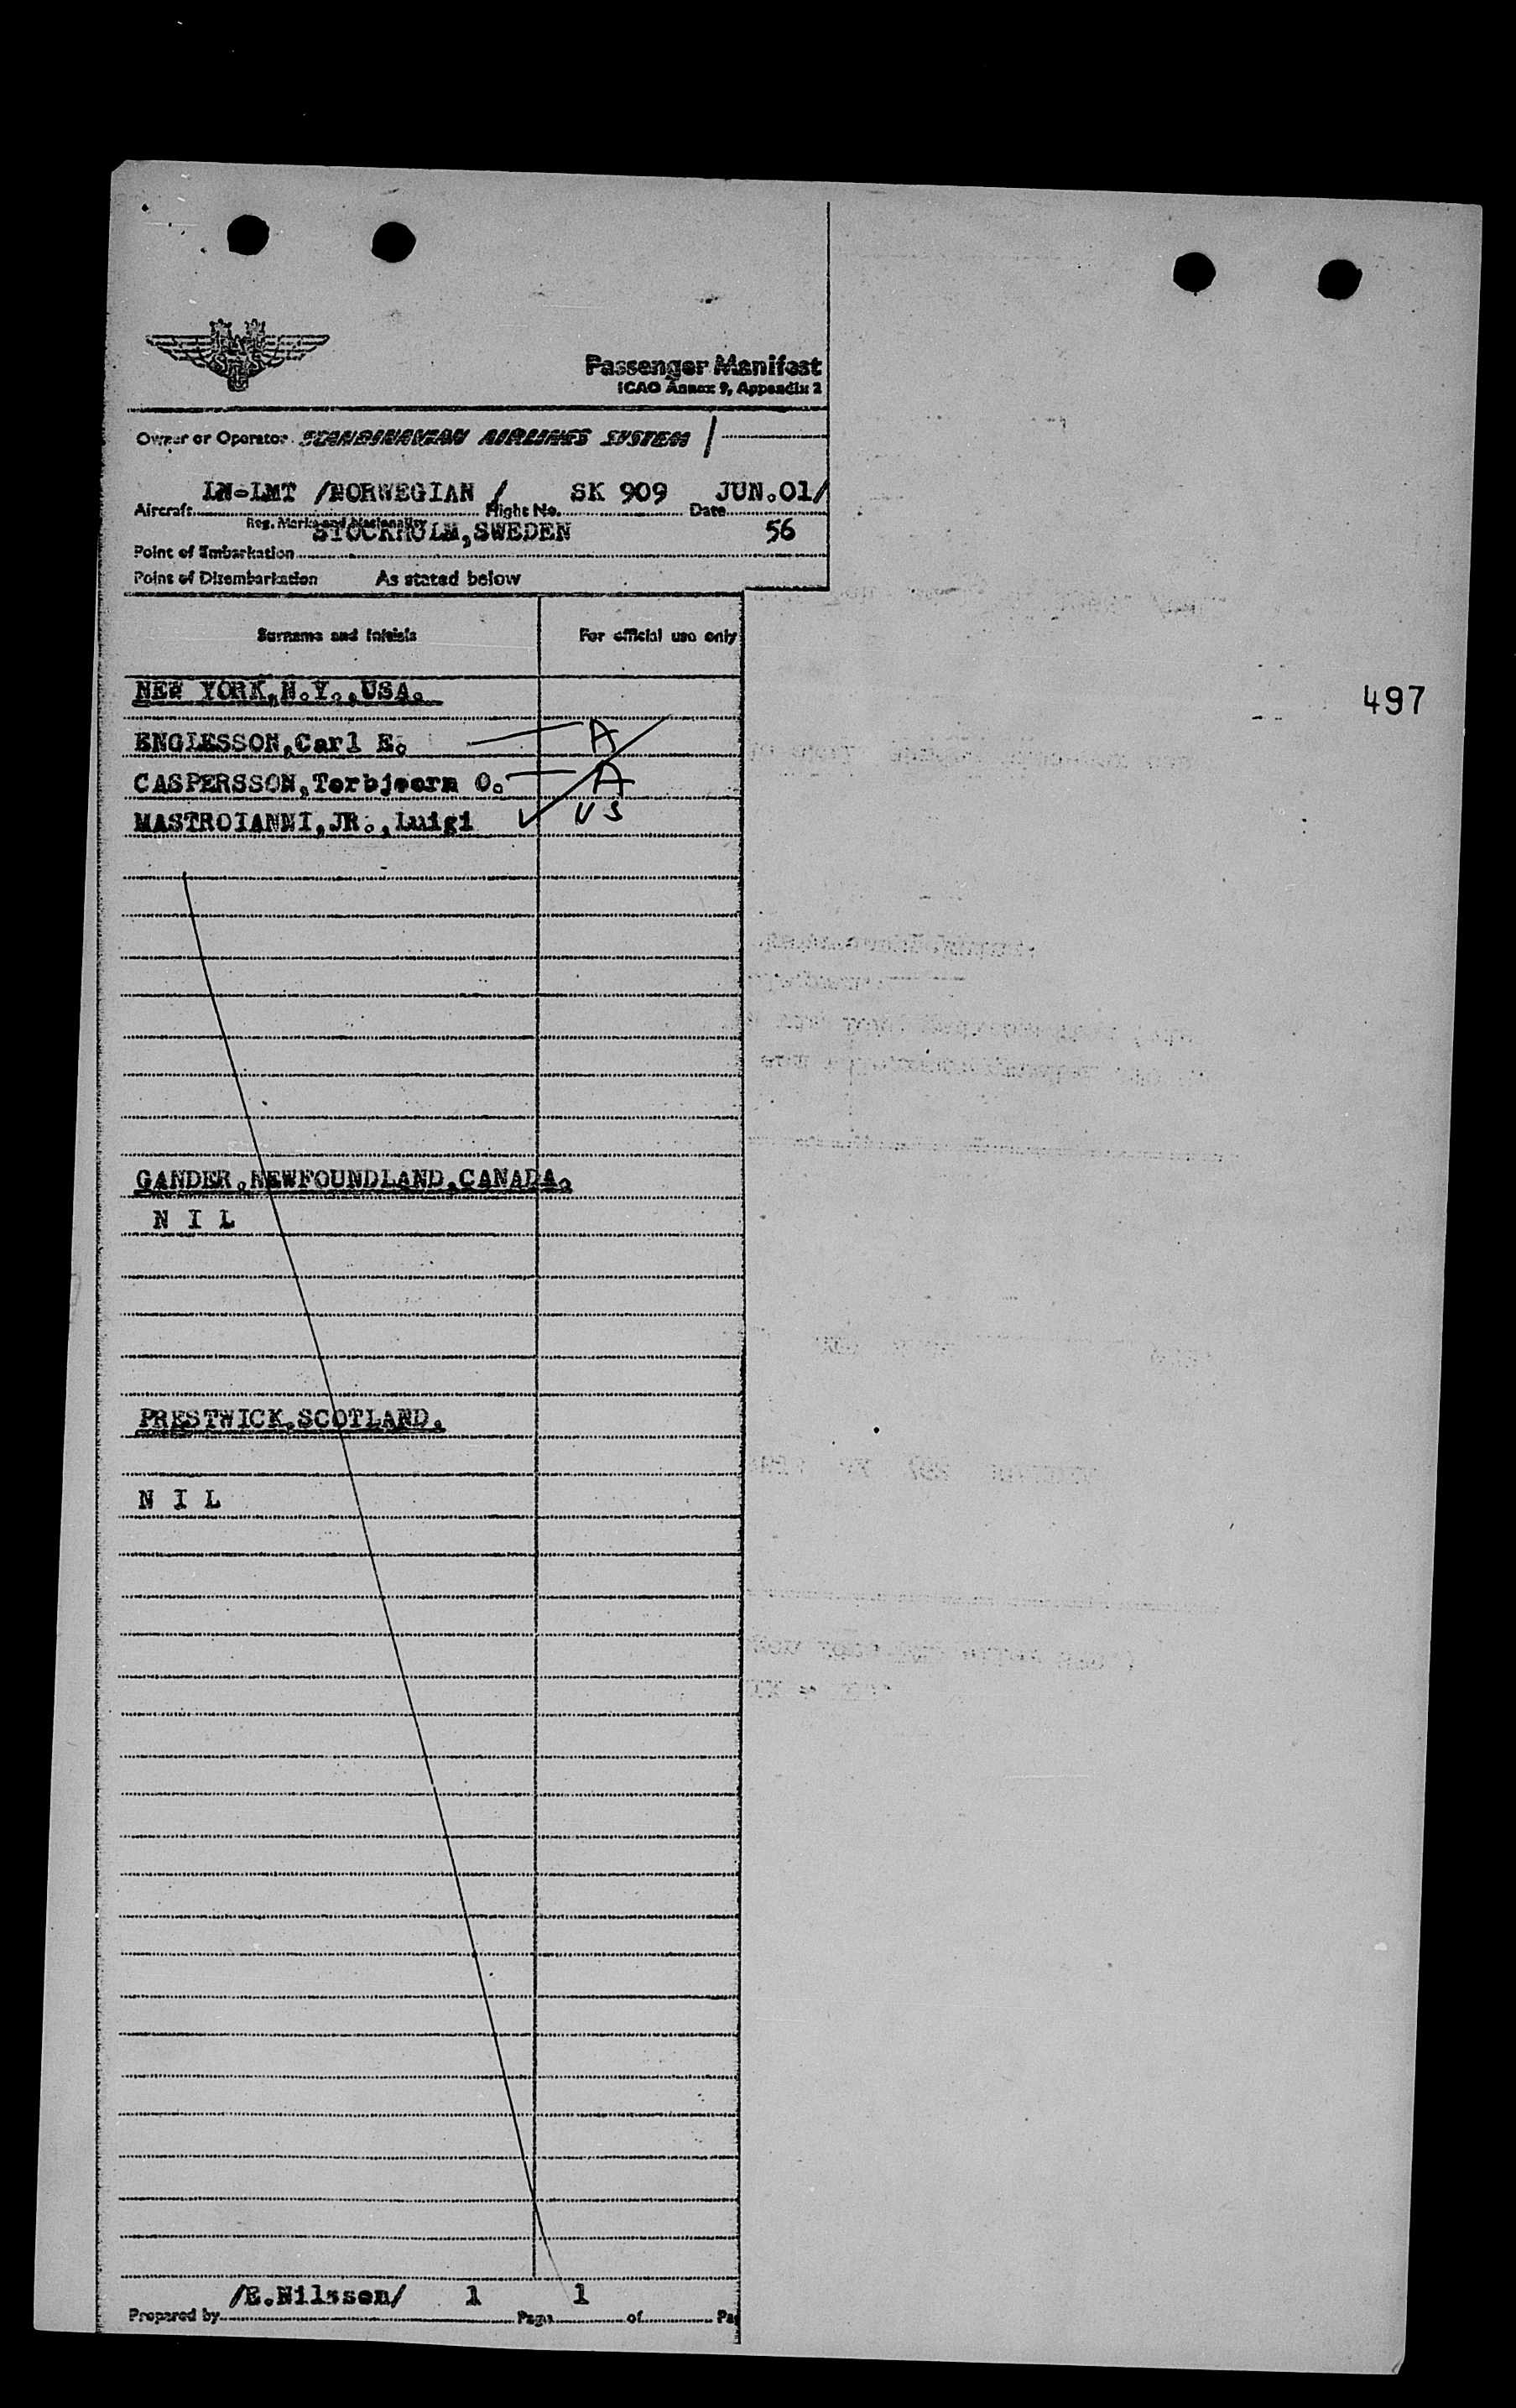 Passenger Manifest
ICAO Annex 9, Appendix 2
Owner or Operator SCANDINAVIAN AIRLINES SYSTEM /
LN-LMT /NORWEGIAN / SK 909 JUN.01/
Aircraft Flight No. Date
Reg. Marks and Nationality
STOCKHOLM,SWEDEN 56
Point of Embarkation
Point of Disembarkation As stated below
Surname and Initials For official use only
NEW YORK,N.Y.,USA.
497
ENGLESSON,Carl E. A
CASPERSSON,Torbjoern O. A
MASTROIANNI,JR.,Luigi ✓ US
GANDER,NEWFOUNDLAND,CANADA.
N I L
PRESTWICK,SCOTLAND.
N I L
/E.Nilssen/ 1 1
Prepared by Page of Pa